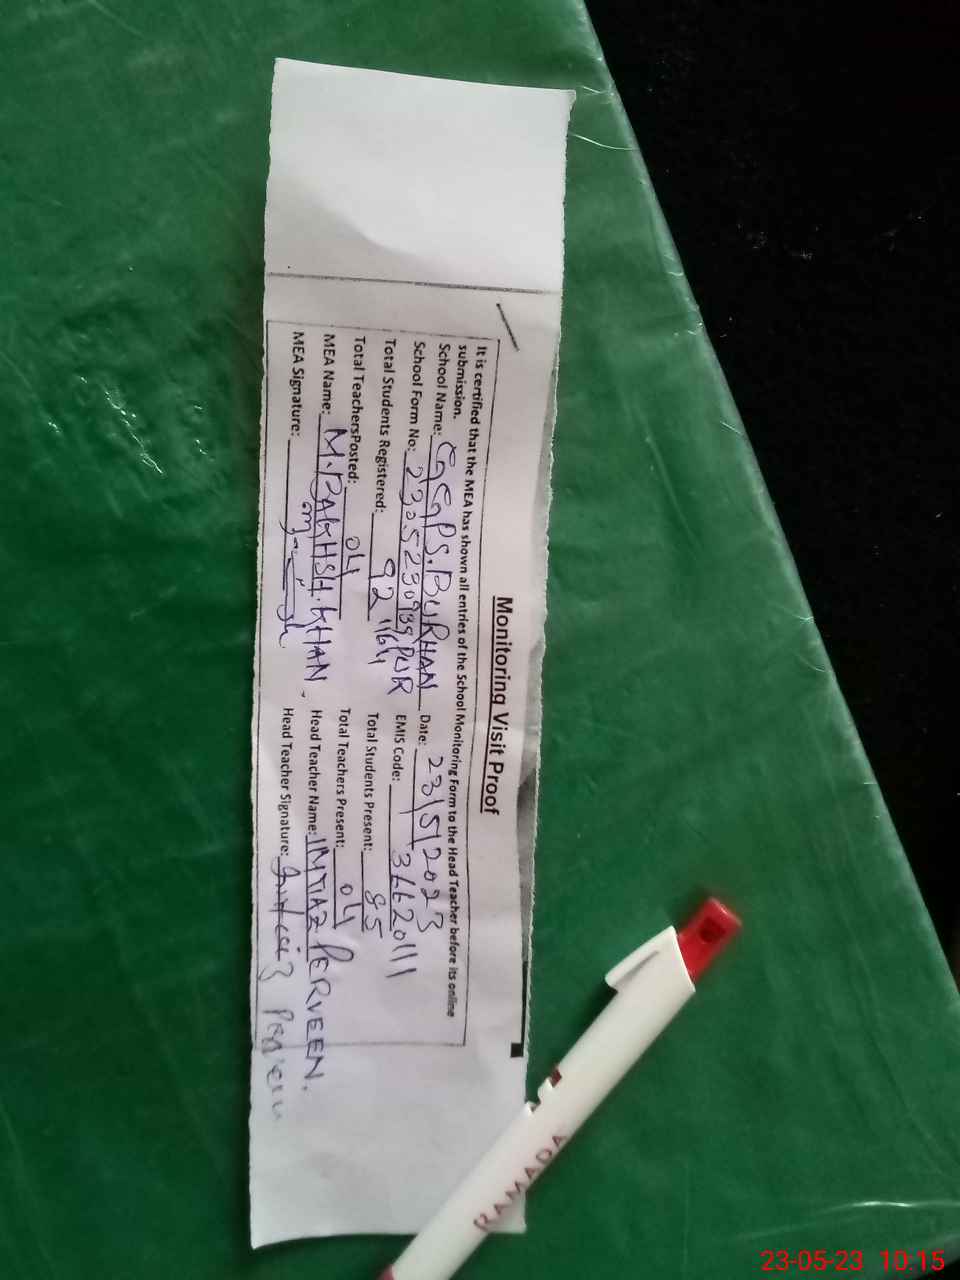 Monitoring Visit Proof
It is certified that the MEA has shown all entries of the School Monitoring Form to the Head Teacher before its online
submission.
School Name: GGPS. BURHAN PUR Date: 23/5/2023
School Form No: 230523093911641 EMIS Code: 36620111
Total Students Registered: 92 Total Students Present: 85
Total TeachersPosted: 04 Total Teachers Present: 04
MEA Name: M. BAKHSH. KHAN. Head Teacher Name: IMTIAZ PERVEEN.
MEA Signature: Head Teacher Signature:
RAMADA
23-05-23 10:15